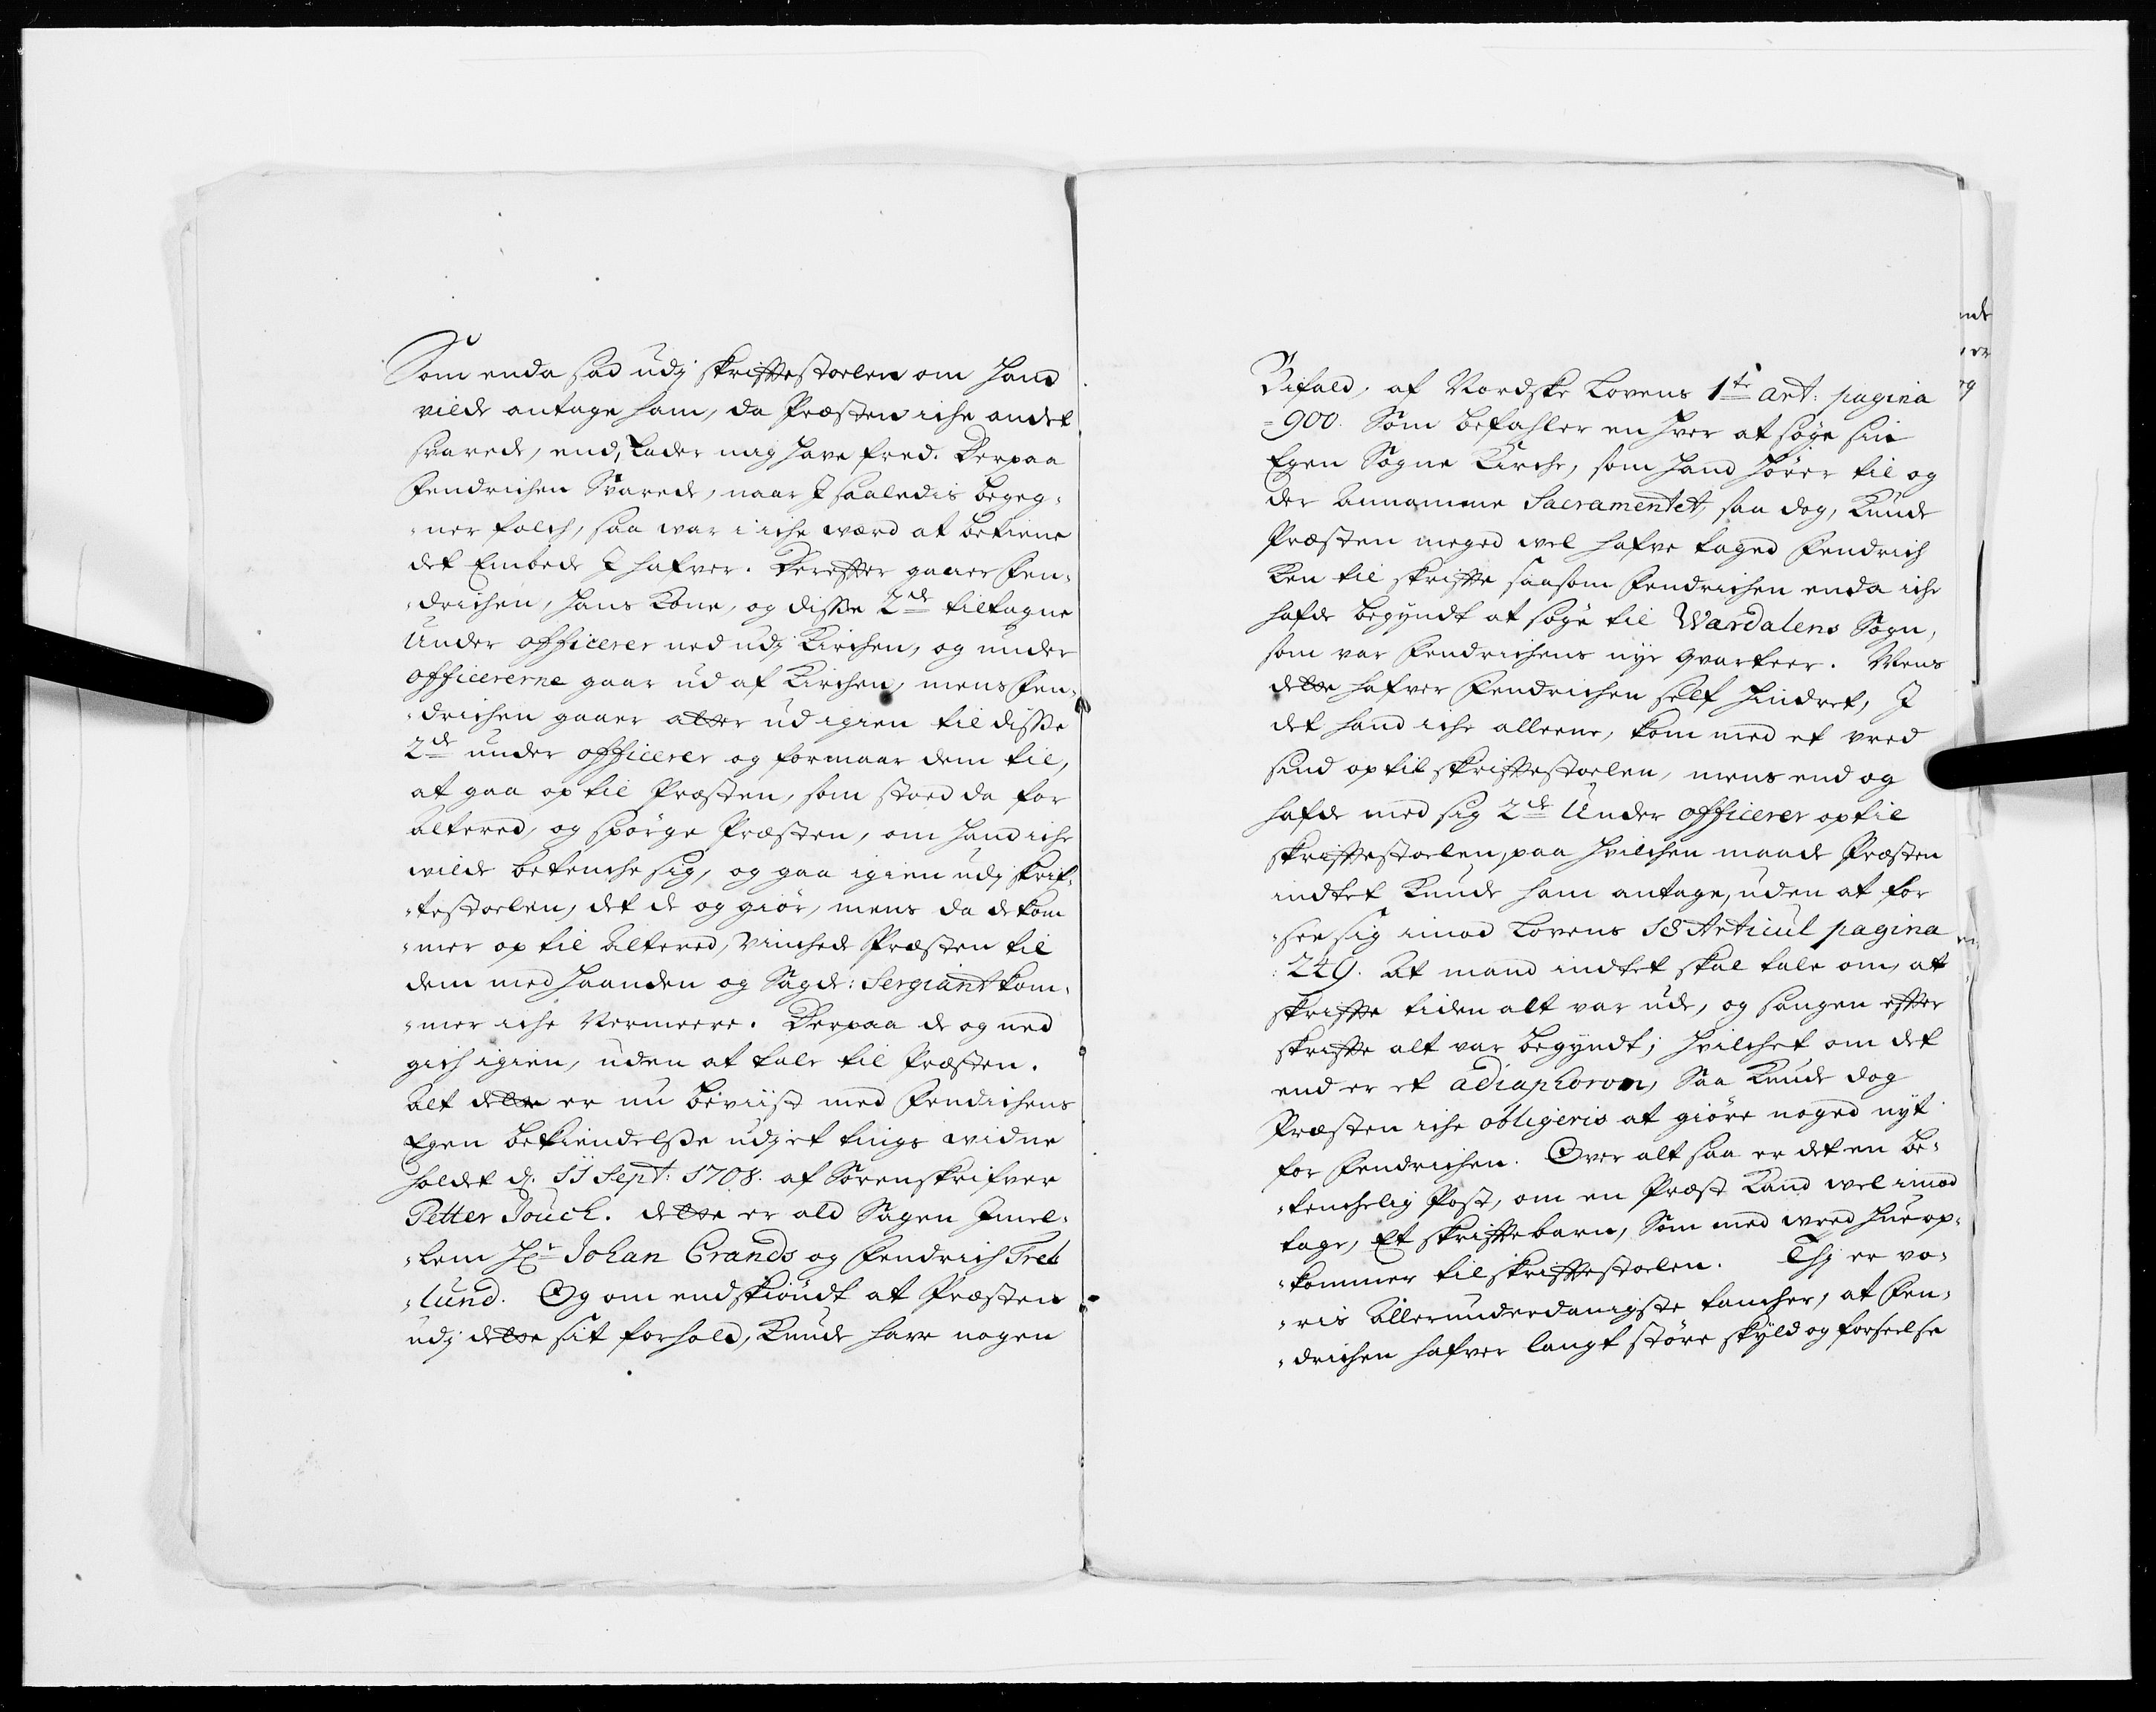 Som enda sad udj skriffestoelen om hand
vilde antage ham, da Præsten iche andet
svarede, end, Lader mig have fred. Derpaa
Fendrichen Svarede, naar I saaledis begeg¬
ner folch, saa war i iche værd at betiene
det Embede I hafver. Dereffter gaaer Fen¬
drichen, hans Kone, og disse 2de tiltagne
Under officerer ned udj Kirchen, og under
officererne gaar ud af Kirchen, mens Fen¬
drichen gaaer atter ud igien til disse
2de under officerer og formaar dem til,
at gaa op til Præsten, som stoed da for
alteret, og spørge Præsten, om hand iche
wilde betenche sig, og gaa igien udj skrif¬
testoelen, det de og giør, mens da de kom
mer op til Altered, vinchede Præsten til
dem med haanden og Sagde: Sergiant kom¬
mer iche Nermeere. Derpaa de og ned
gich igien, uden at tale til Præsten.
Alt dette er nu beviist med Fendichens
Egen bekiendelsse udj et tings widne
holdet d. 11 Sept: 1708. af Sorenskrifver
Petter Jouch. dette er ald Sagen Imel¬
lem Hr Johan Crands og Fendrich Tret
lund. Og om endskiøndt at Præsten
udj dette sit forhold, Kunde have nogen
Bifald, af Nordske Lovens 1te art: pagina
900. Som befahler en hver at søge sin
Egen Sogne Kirche, som hand hører til og
der Annamme Sacramentet, saa dog, Kunde
Præsten meged wel hafve taged Fendrich
Ken til skriffte saasom Fendrichen enda iche
hafde begyndt at søge til Wardalens Sogn,
som var Fendrichens nye qvarteer. Mens
dette hafver Fendrichen self hindret, I
det hand iche alleene, kom med et vred
sind op til skriffestoelen, mens end og
hafde med sig 2de Under officerer op til
skriffestoelen, paa hvilchen maade Præsten
indtet Kunde ham antage, uden at for
see sig imod Lovens 18 Articul pagina
249. At mand indtet skal tale om, at
skriffte tiden alt var ude, og sangen effter
skriffte alt var begyndt; hvilchet om det
end er et adiaphoron, Saa Kunde dog
Præsten iche obligeris at giøre noged nyt
for Fendrichen. Over alt saa er det en be¬
tenchelig Post, om en Præst Kand wel imod
tage, Et skrifftebarn, Som med wred hue op¬
kommer til skriffestoelen. Thj er vo¬
ris Allerunderdanigste tancher, at Fen¬
drichen hafver langt støre skyld og forseelse